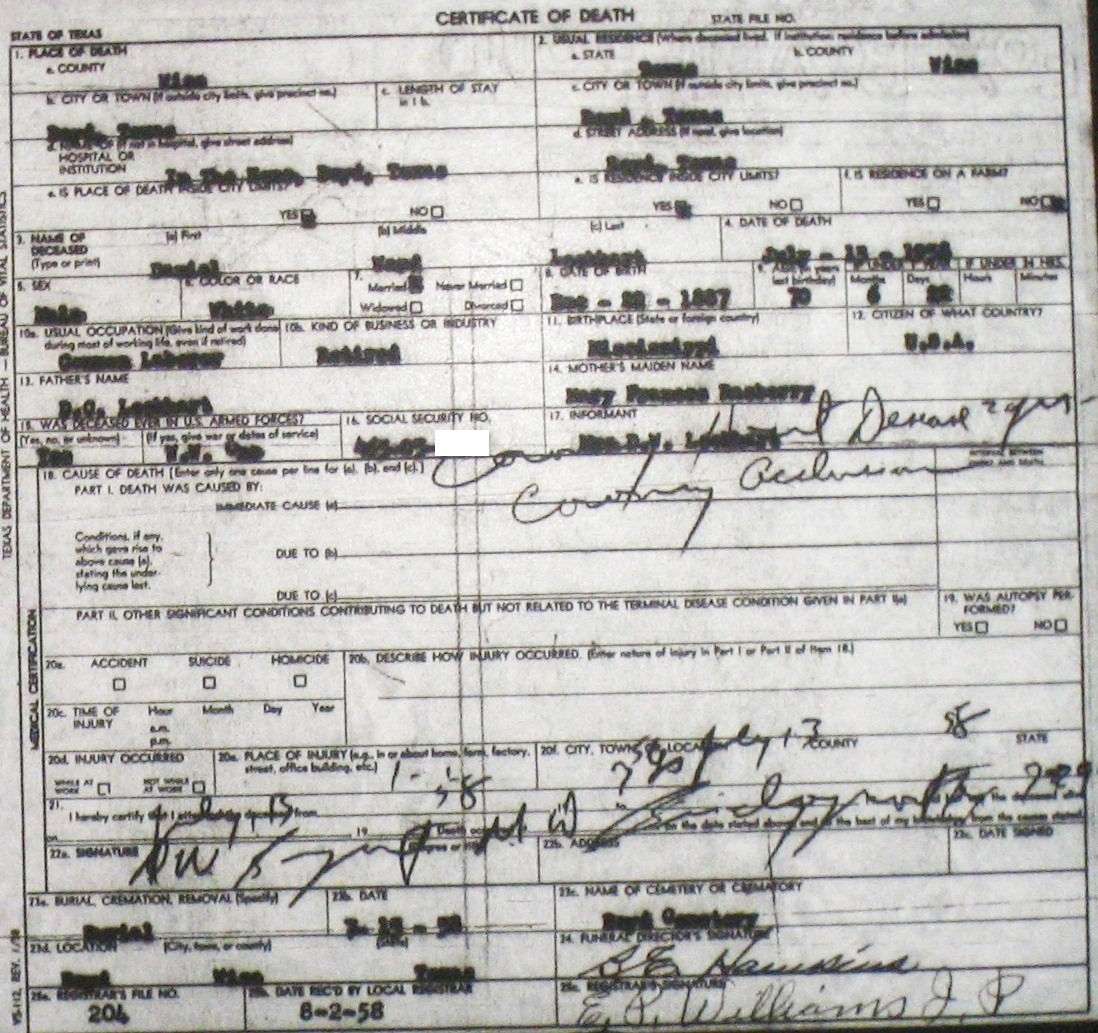 CERTIFICATE OF DEATH
STATE FILE NO.
STATE OF TEXAS
1. PLACE OF DEATH
a. COUNTY
Wise
2. USUAL RESIDENCE (Where deceased lived. If institution: residence before admission)
a. STATE
Texas
b. COUNTY
Wise
b. CITY OR TOWN (If outside city limits, give precinct no.)
Boyd, Texas
c. LENGTH OF STAY
in 1 b.
c. CITY OR TOWN (If outside city limits, give precinct no.)
Boyd, Texas
d. NAME OF (If not in hospital, give street address)
HOSPITAL OR
INSTITUTION
In The Home, Boyd, Texas
d. STREET ADDRESS (If rural, give location)
Boyd, Texas
e. IS PLACE OF DEATH INSIDE CITY LIMITS?
YES NO
e. IS RESIDENCE INSIDE CITY LIMITS?
YES NO
f. IS RESIDENCE ON A FARM?
YES NO
3. NAME OF
DECEASED
(Type or print)
(a) First
Daniel
(b) Middle
(c) Last
Lockhart
4. DATE OF DEATH
July - 13 - 1958
5. SEX
Male
6. COLOR OR RACE
White
7.
Married Never Married
Widowed Divorced
8. DATE OF BIRTH
Dec - 22 - 1887
9. AGE (In years
last birthday)
70
IF UNDER 1 YEAR
Months Days
6
IF UNDER 24 HRS.
Hours Minutes
10a. USUAL OCCUPATION (Give kind of work done
during most of working life, even if retired)
Common Laborer
10b. KIND OF BUSINESS OR INDUSTRY
Retired
11. BIRTHPLACE (State or foreign country)
Mississippi
12. CITIZEN OF WHAT COUNTRY?
U.S.A.
13. FATHER'S NAME
D.C. Lockhart
14. MOTHER'S MAIDEN NAME
Mary Frances
15. WAS DECEASED EVER IN U.S. ARMED FORCES?
(Yes, no, or unknown)
Yes
(If yes, give war or dates of service)
W.W. One
16. SOCIAL SECURITY NO.
17. INFORMANT
Mrs. D.W. Lockhart
Coronary Heart Disease 2 yrs
18. CAUSE OF DEATH [Enter only one cause per line for (a), (b), and (c).]
INTERVAL BETWEEN
ONSET AND DEATH
PART I. DEATH WAS CAUSED BY:
IMMEDIATE CAUSE (a)
Coronary Occlusion
Conditions, if any,
which gave rise to
above cause (a),
stating the under-
lying cause last.
DUE TO (b)
DUE TO (c)
PART II. OTHER SIGNIFICANT CONDITIONS CONTRIBUTING TO DEATH BUT NOT RELATED TO THE TERMINAL DISEASE CONDITION GIVEN IN PART I(a)
19. WAS AUTOPSY PER-
FORMED?
YES NO
MEDICAL CERTIFICATION
20a. ACCIDENT SUICIDE HOMICIDE
20b. DESCRIBE HOW INJURY OCCURRED. (Enter nature of injury in Part I or Part II of Item 18.)
20c. TIME OF
INJURY
Hour Month Day Year
a.m.
p.m.
20d. INJURY OCCURRED
WHILE AT
WORK
NOT WHILE
AT WORK
20e. PLACE OF INJURY (e.g., in or about home, farm, factory,
street, office building, etc.)
20f. CITY, TOWN, OR LOCATION COUNTY STATE
July 13 58
21. I hereby certify that I attended the deceased from
July 13
19 Death occurred
on the date stated above; and to the best of my knowledge, from the causes stated.
22a. SIGNATURE (Degree or title)
22b. ADDRESS
22c. DATE SIGNED
23a. BURIAL, CREMATION, REMOVAL (Specify)
Burial
23b. DATE
7- 15 - 58
23c. NAME OF CEMETERY OR CREMATORY
Boyd Cemetery
23d. LOCATION (City, town, or county) (State)
Boyd Wise Texas
24. FUNERAL DIRECTOR'S SIGNATURE
25a. REGISTRAR'S FILE NO.
204
25b. DATE REC'D BY LOCAL REGISTRAR
8-2-58
25c. REGISTRAR'S SIGNATURE
E. P. Williams J. P
TEXAS DEPARTMENT OF HEALTH — BUREAU OF VITAL STATISTICS
VS-112, REV. 1/58